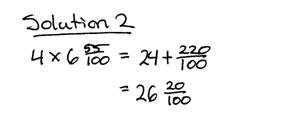 Solution 2
4 × 6 55/100 = 24 + 220/100
= 26 20/100